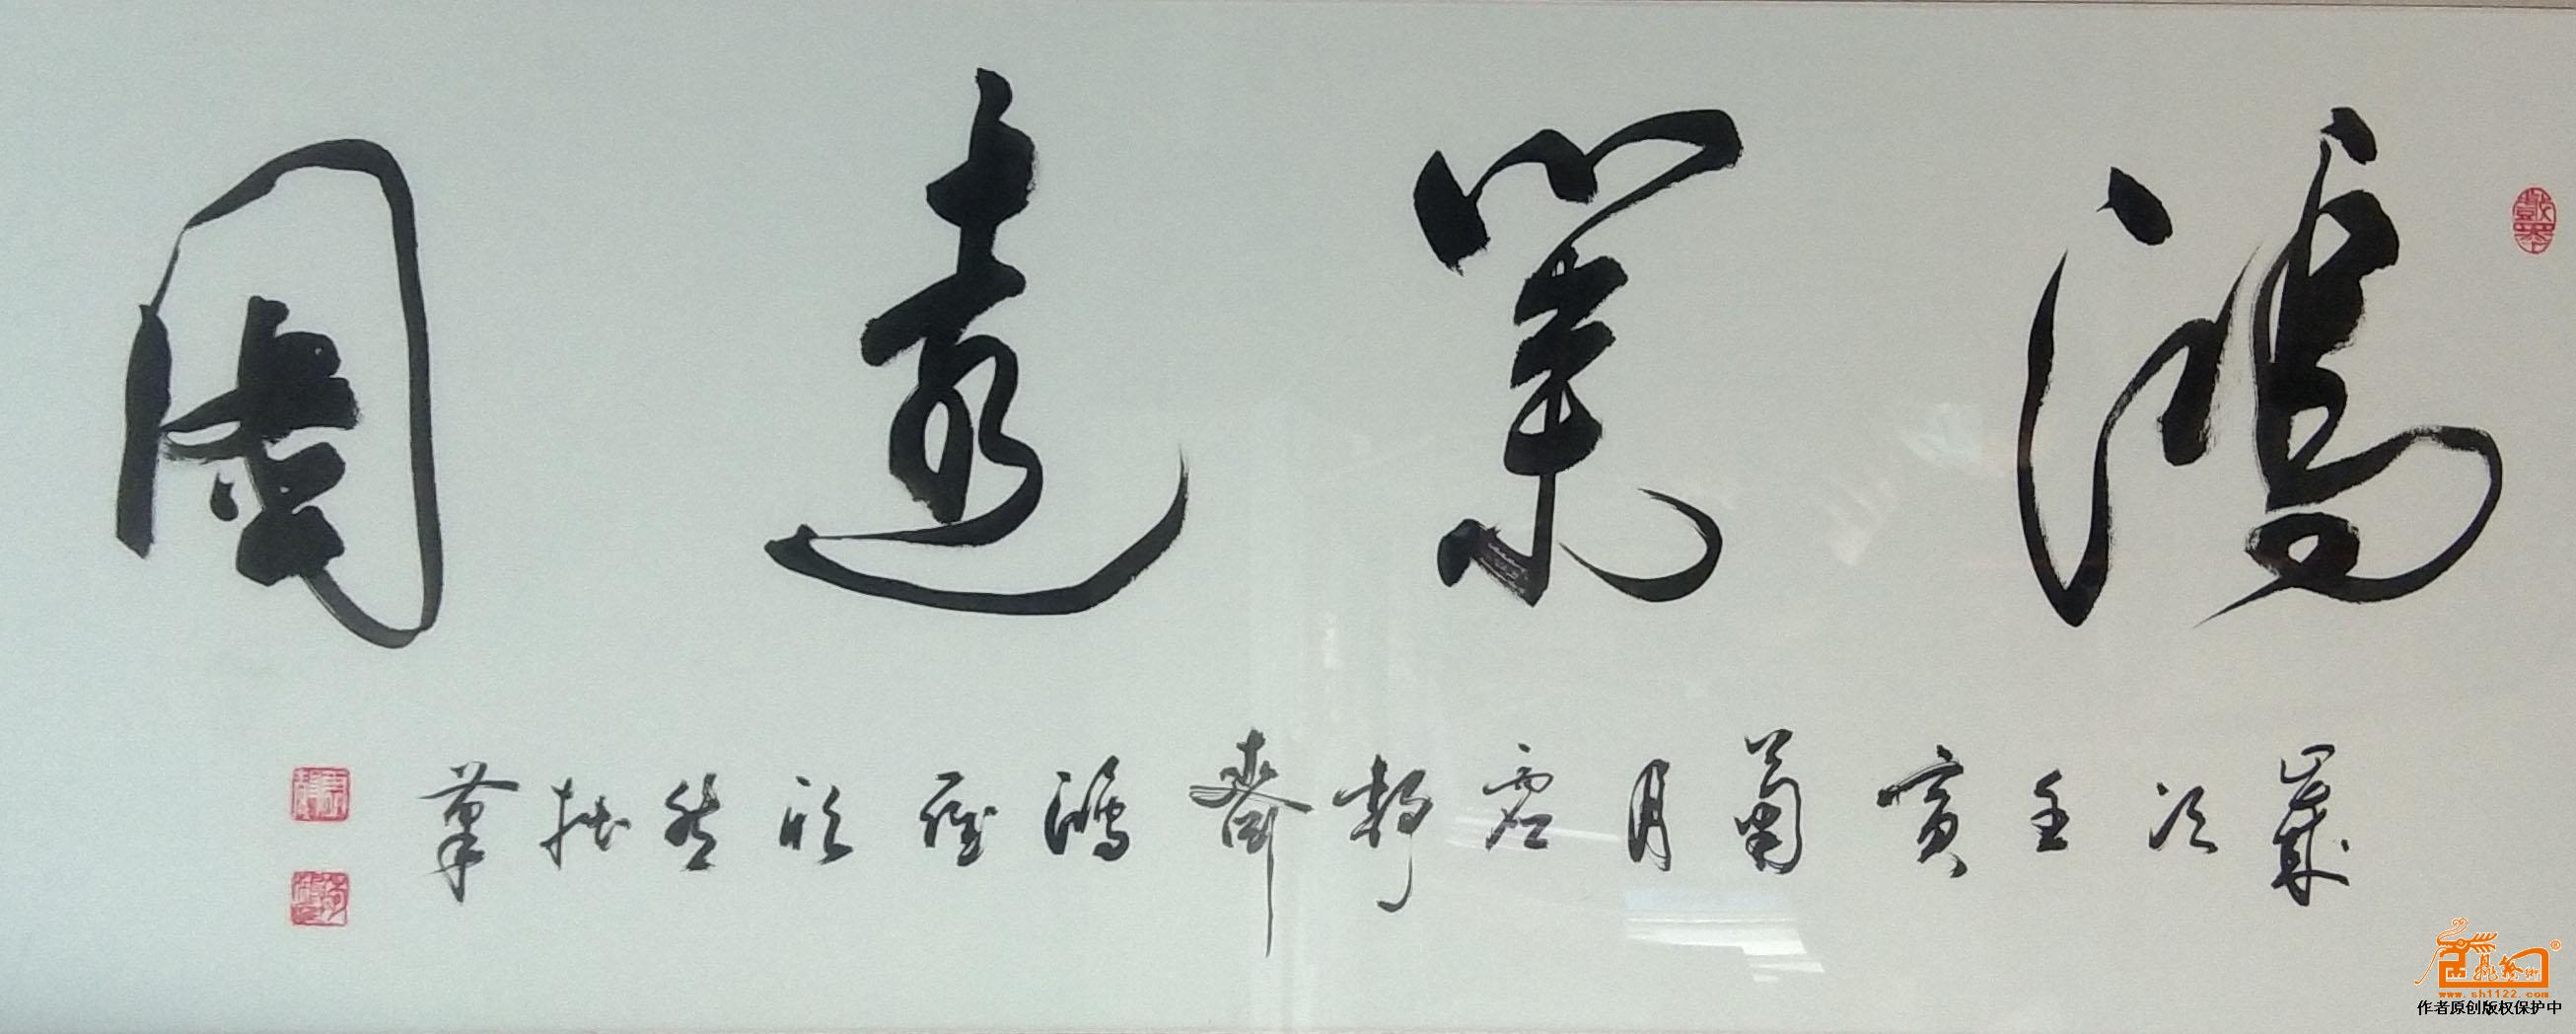 鴻業遠圖
歲次壬寅菊月於静齋鴻程欣然拙筆
www.sh1122.com
作者原创版权保护中